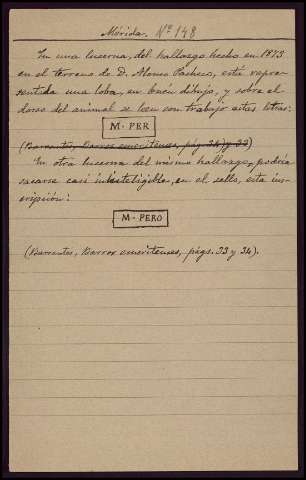 Mérida. Nº 148
En una lucerna, del hallazgo hecho en 1873
en el terreno de D. Alonso Pacheco, está repre-
sentada una loba, en buen dibujo, y sobre el
dorso del animal se leen con trabajo estas letras:
M· PER
(Barrantes, Barros emeritenses, pág. 34) y 33)
En otra lucerna del mismo hallazgo, podría
sacarse casi ininteligible, en el sello, esta ins-
cripción:
M· PERO
(Barrantes, Barros emeritenses, págs. 33 y 34).